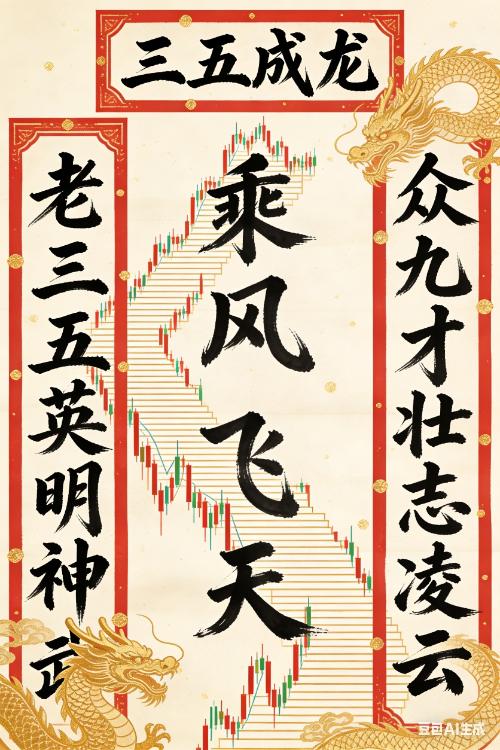 三五成龙
众九才壮志凌云
乘风飞天
老三五英明神武
豆包AI生成